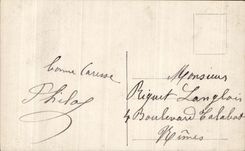 bonne Caresse
Monsieur
Riquet Langlois
4 Boulevard Talabot
Nîmes